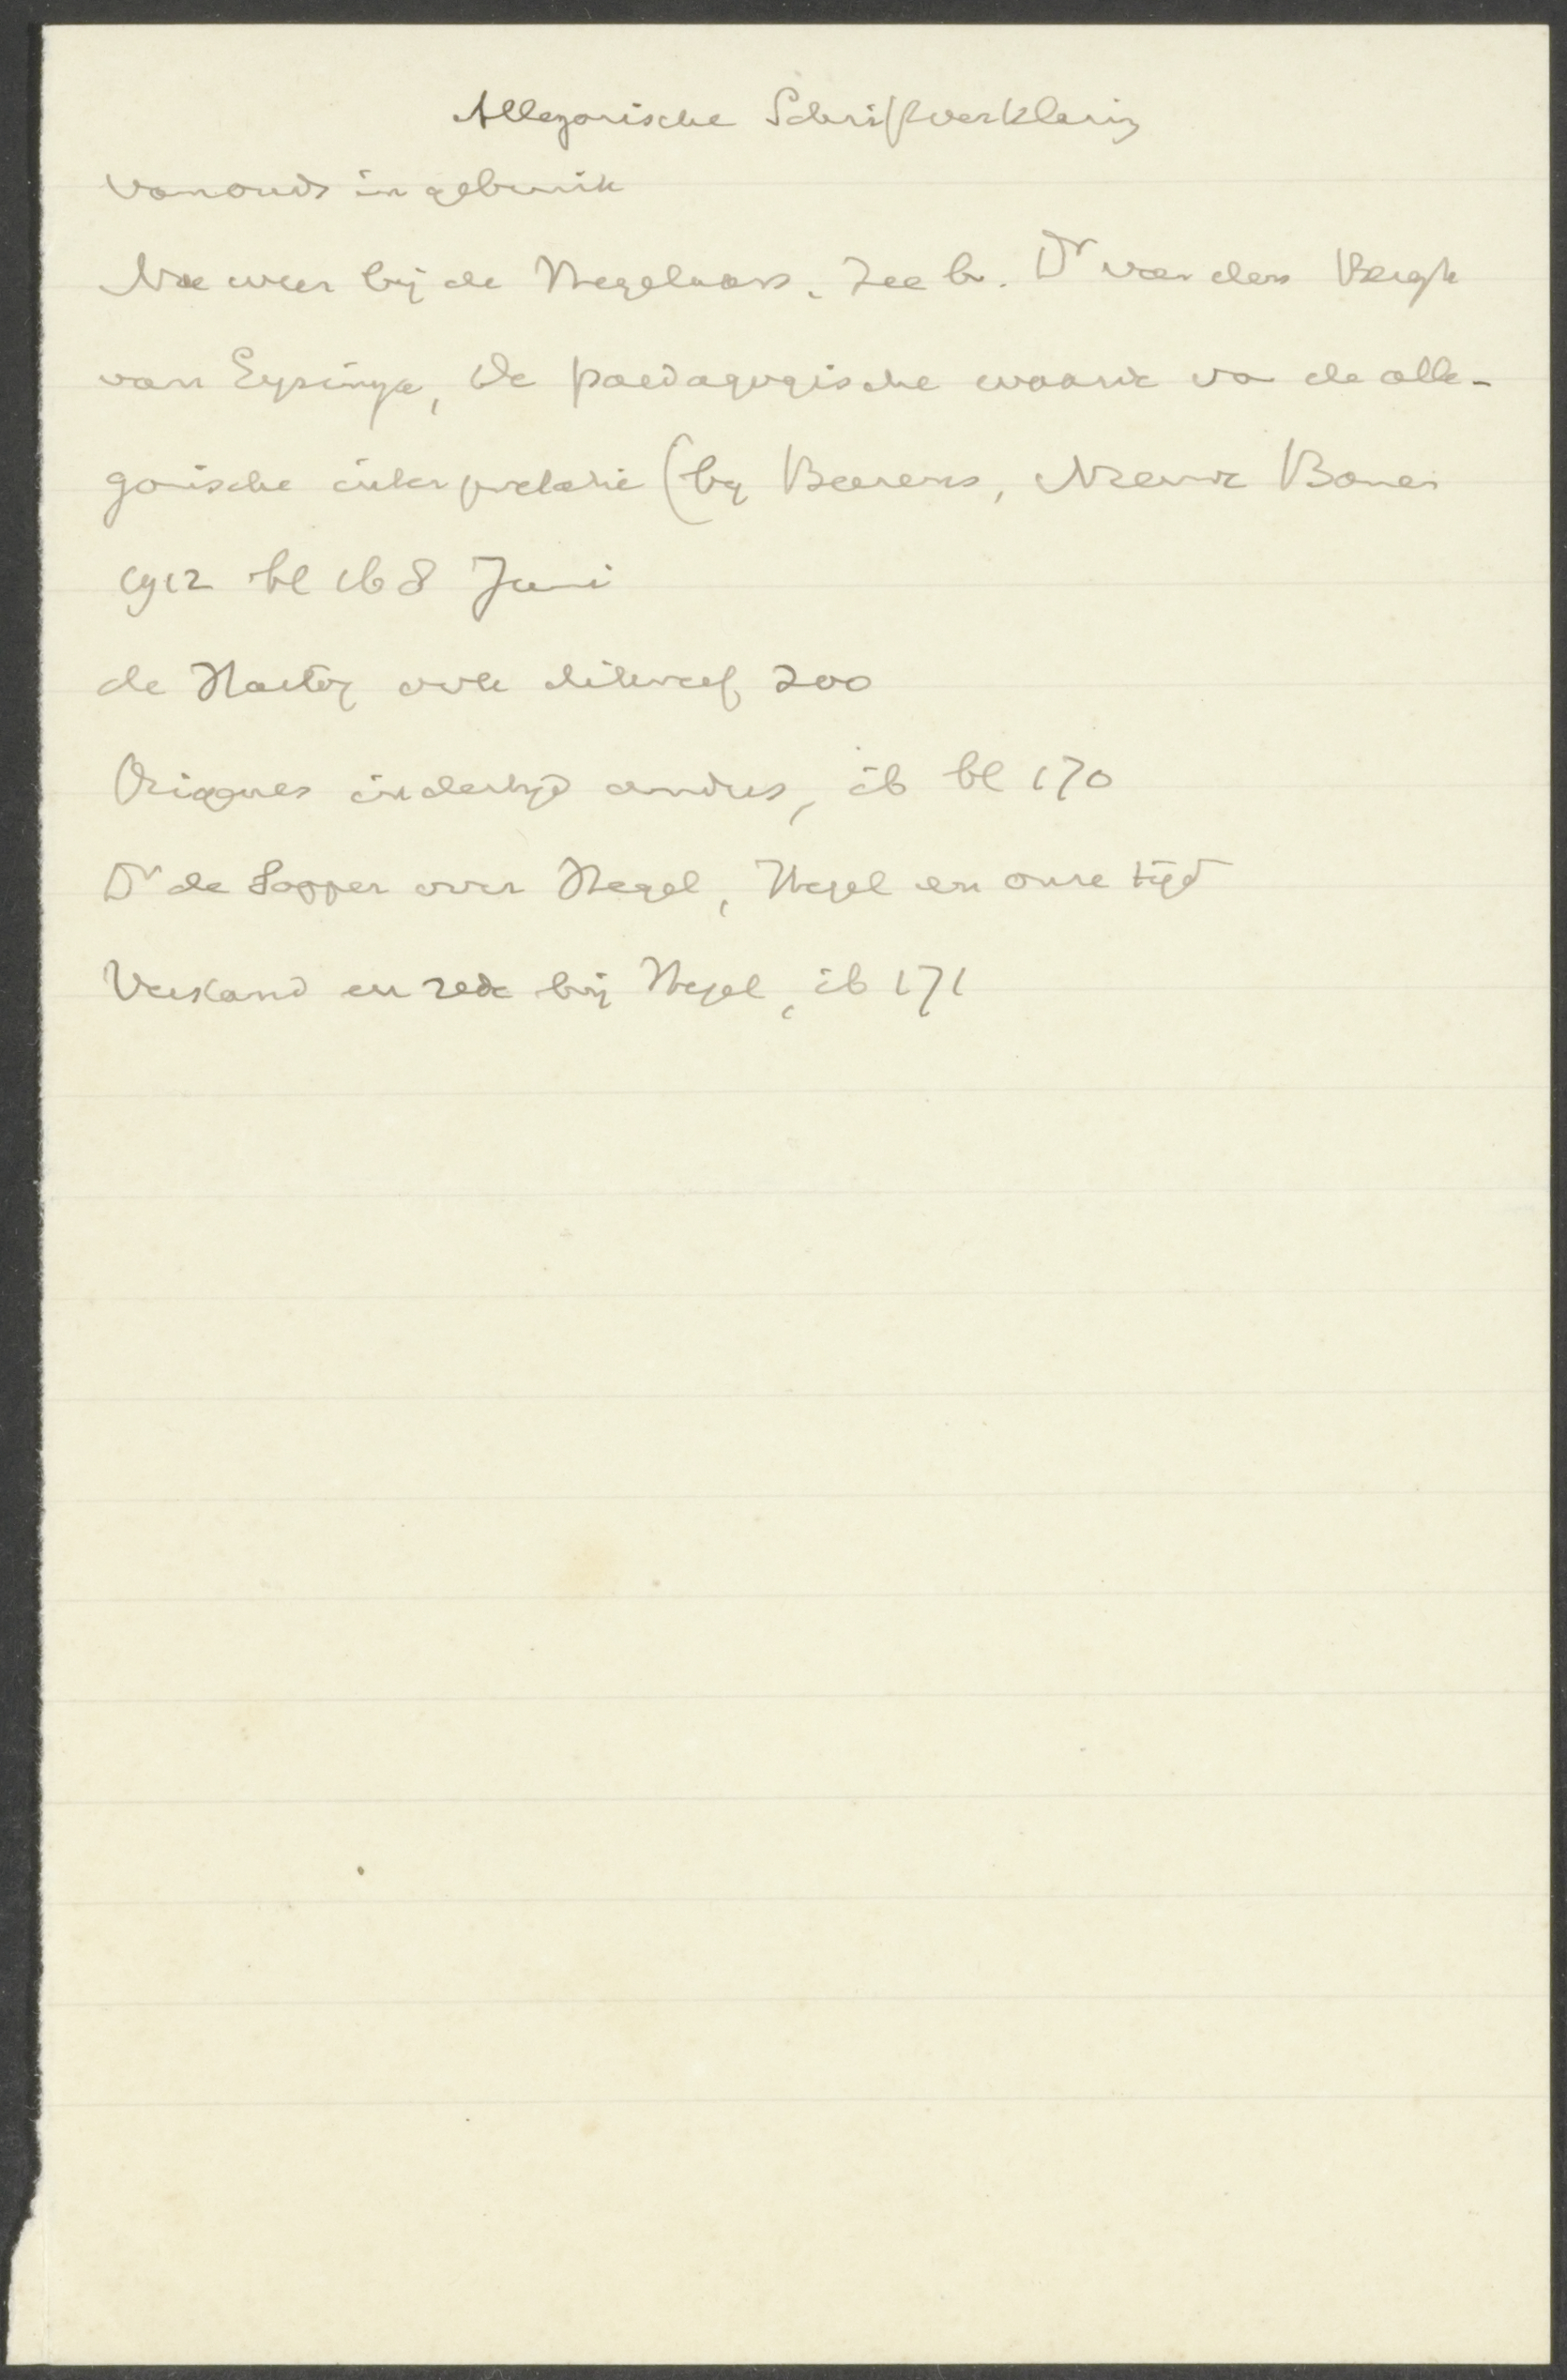 Allegorische Schriftverklaring
vanouds in gebruik
Nu weer bij de Hegelaars. Zee b. Dr van den Bergh
van Eysinga, De paedagogische waarde va de alle-
gorische interpretatie (by Beerens, Nieuwe Banen
1912 bl 168 Juni
de Hartog ook zoo
Origenes indertijd anders, ib bl 170
Dr de Sopper over Hegel, Hegel en onze tijd
Verstand en rede bij Hegel, ib 171